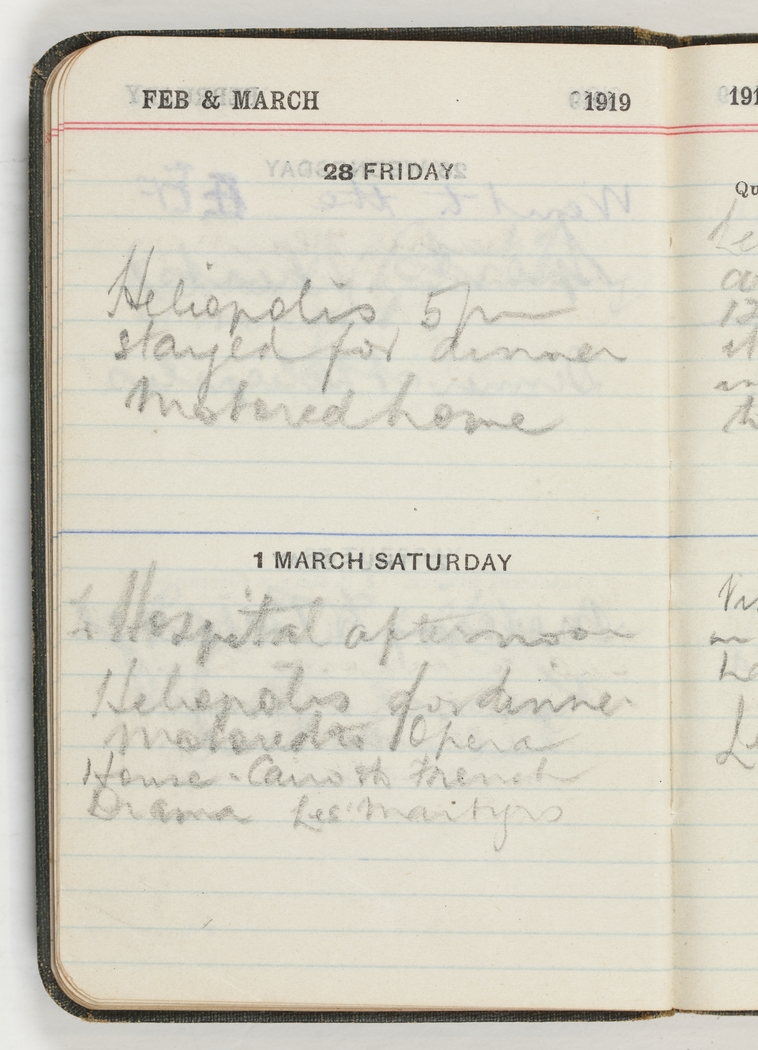 FEB & MARCH 1919
28 FRIDAY
Heliopolis 5pm
stayed for dinner
Motored home
1 MARCH SATURDAY
Hospital afternoon
Heliopolis for dinner
Motored to Opera
House - Cairo to French
Drama Les Martyrs
191
Qu